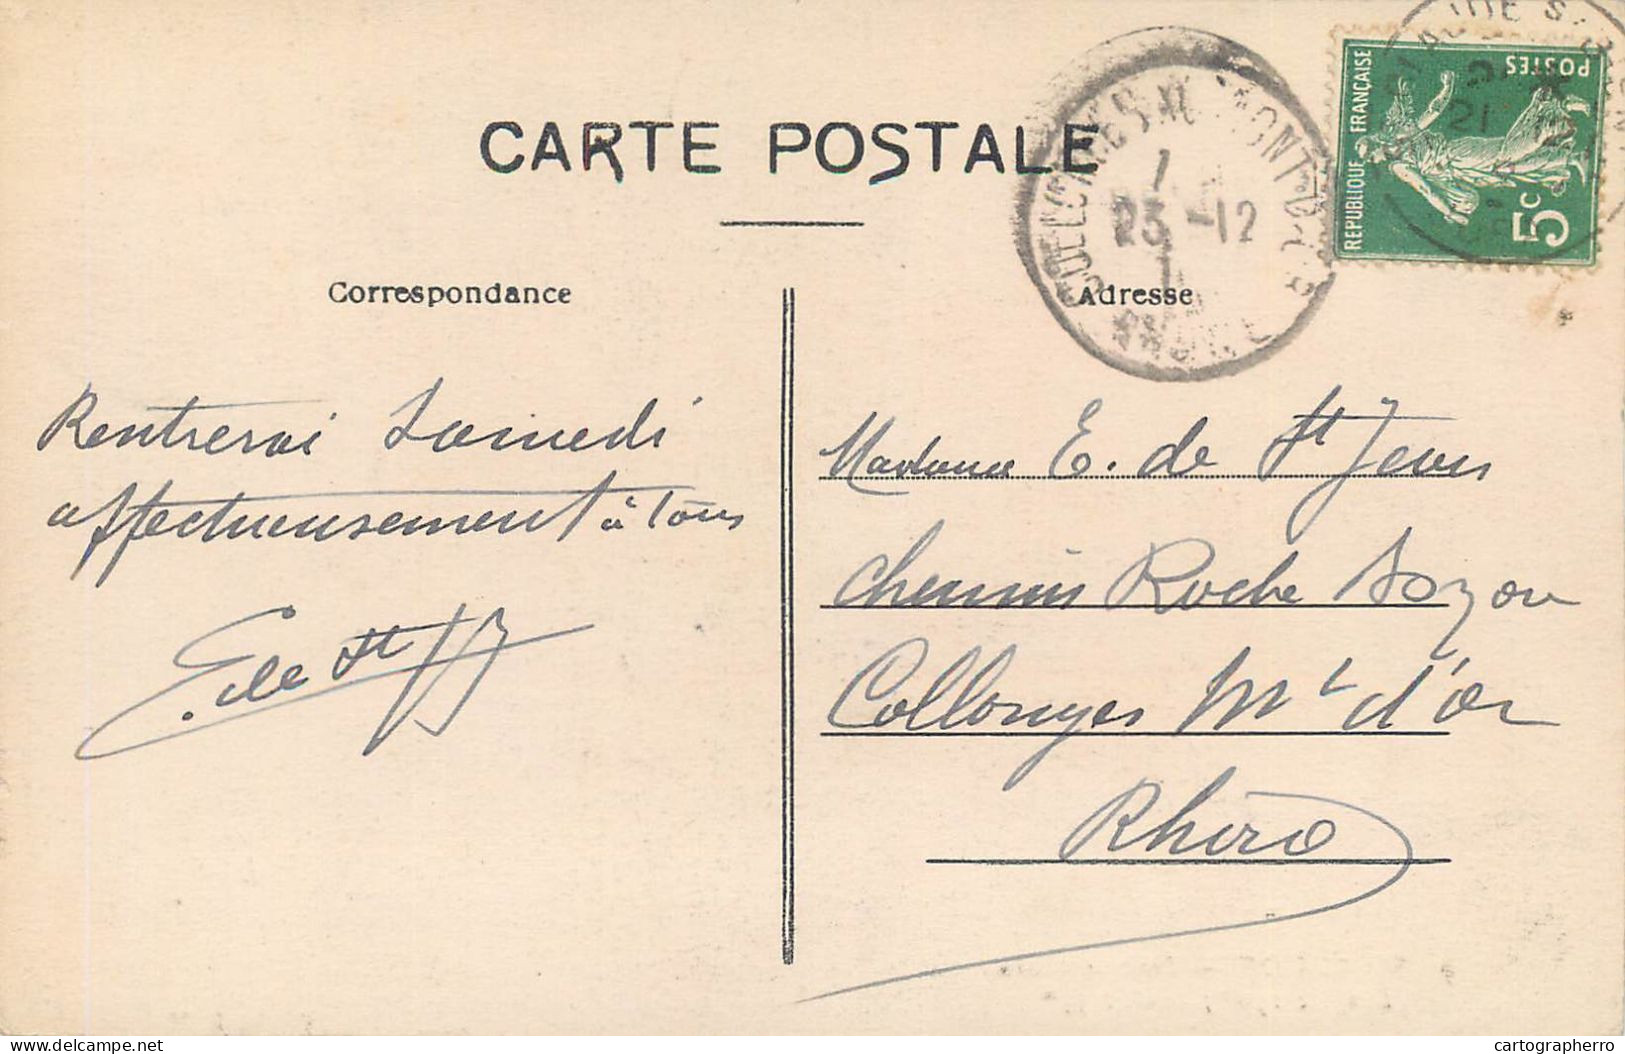 CARTE POSTALE
Correspondance
Adresse
REPUBLIQUE FRANÇAISE
POSTES
5c
23 -12
RHONE
Rentrerai Samedi
affectueusement à tous
E. de St J
Madame E. de St Jean
chemin Roche Bozon
Collonges Mt d'or
Rhône
delcampe.net
cartographerro